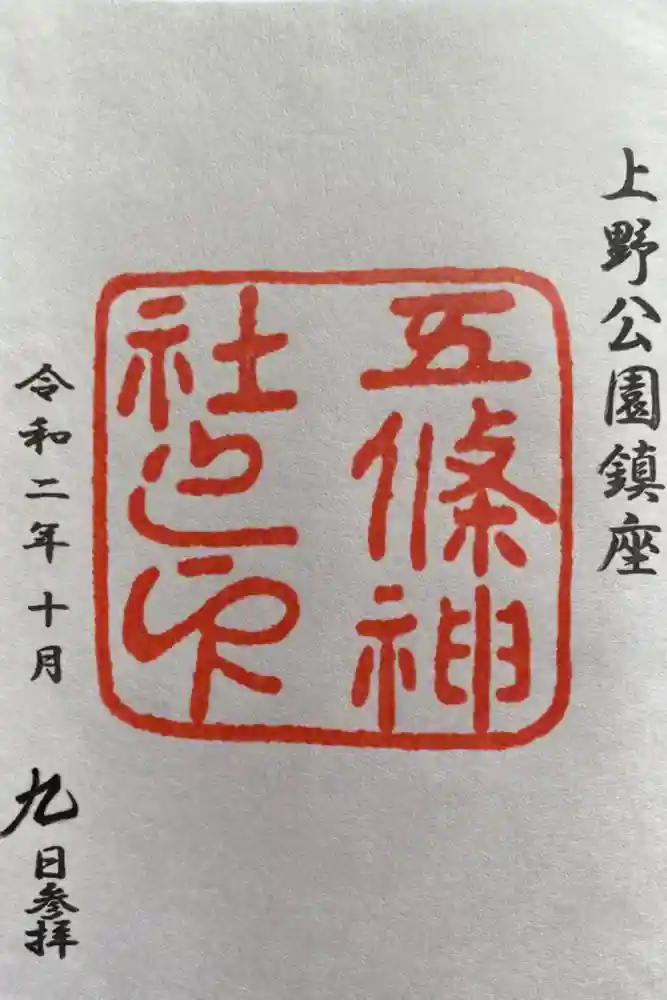 上野公園鎮座
五條神
社之印
令和二年十月
九日参拝